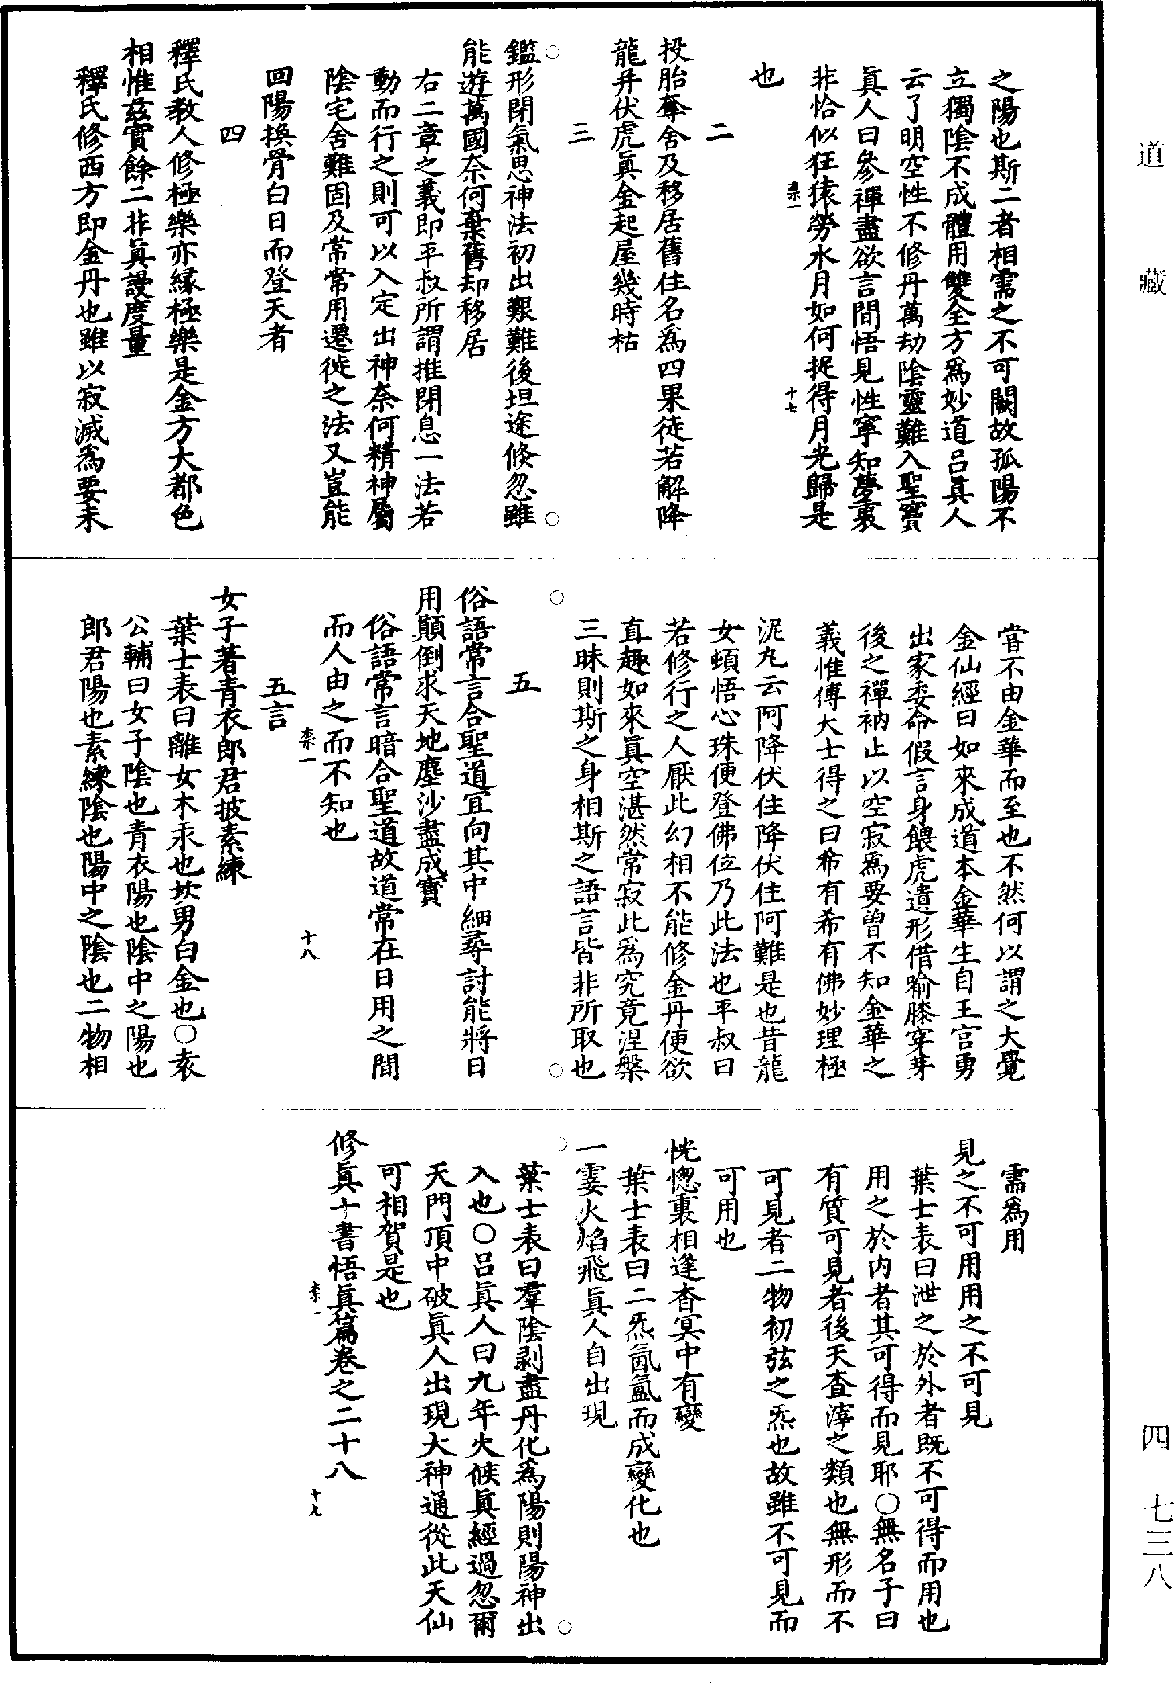 道藏
四 七三八
之陽也斯二者相需之不可闕故孤陽不
立獨陰不成體用雙全方爲妙道呂眞人
云了明空性不修丹萬劫陰靈難入聖寶
眞人曰參禪盡欲言間悟見性寧知夢裏
非恰似狂猿勞水月如何捉得月光歸是
柰一 十七
也
二
投胎奪舍及移居舊住名爲四果徒若解降
龍并伏虎眞金起屋幾時枯
三
鑑形閉氣思神法初出艱難後坦途倏忽雖
能遊萬國奈何棄舊却移居
右二章之義即平叔所謂推閉息一法若
動而行之則可以入定出神奈何精神屬
陰宅舍難固及常常用遷徙之法又豈能
回陽換骨白日而登天者
四
釋氏教人修極樂亦緣極樂是金方大都色
相惟茲實餘二非眞謾度量
釋氏修西方即金丹也雖以寂滅爲要未
甞不由金華而至也不然何以謂之大覺
金仙經曰如來成道本金華生自王宫勇
出家委命假言身餵虎遺形借喻膝穿芽
後之禪衲止以空寂爲要曾不知金華之
義惟傅大士得之曰希有希有佛妙理極
泥丸云阿降伏住降伏住阿難是也昔龍
女頓悟心珠便登佛位乃此法也平叔曰
若修行之人厭此幻相不能修金丹便欲
直趣如來眞空湛然常寂此爲究竟涅槃
三昧則斯之身相斯之語言皆非所取也
五
俗語常言合聖道宜向其中細尋討能將日
用顛倒求天地塵沙盡成寶
俗語常言暗合聖道故道常在日用之間
而人由之而不知也
柰一 十八
五言
女子著青衣郎君披素練
葉士表曰離女木汞也坎男白金也○袁
公輔曰女子陰也青衣陽也陰中之陽也
郎君陽也素練陰也陽中之陰也二物相
需爲用
見之不可用用之不可見
葉士表曰泄之於外者既不可得而用也
用之於内者其可得而見耶○無名子曰
有質可見者後天査滓之類也無形而不
可見者二物初弦之炁也故雖不可見而
可用也
恍惚裏相逢杳冥中有變
葉士表曰二炁氤氳而成變化也
一霎火焰飛眞人自出現
葉士表曰羣陰剥盡丹化爲陽則陽神出
入也○呂眞人曰九年火候眞經過忽爾
天門頂中破眞人出現大神通從此天仙
可相賀是也
修眞十書悟眞篇卷之二十八
柰一 十九